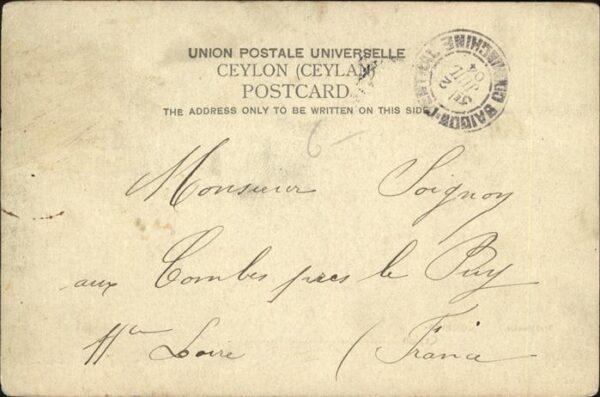 UNION POSTALE UNIVERSELLE
CEYLON (CEYLAN)
POSTCARD
THE ADDRESS ONLY TO BE WRITTEN ON THIS SIDE
SAIGON-CENTRAL
COCHINCHINE
6-
Monsieur Soignon
aux Combes près le Puy
Hte Loire (France